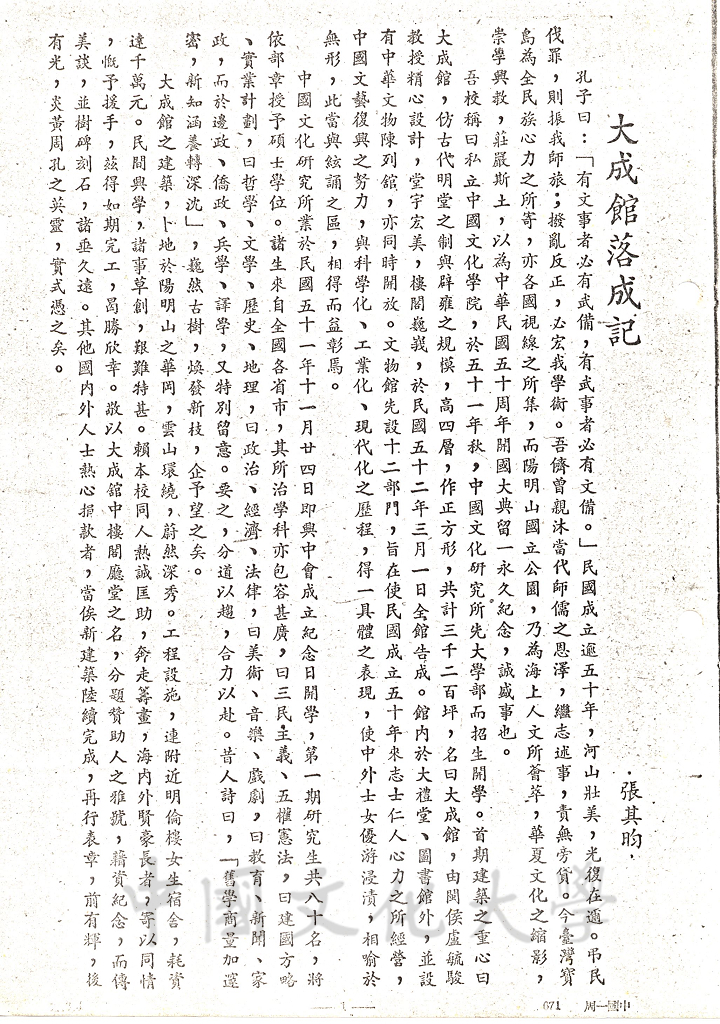 大成館落成記
·張其昀·
孔子曰：「有文事者必有武備，有武事者必有文備。」民國成立逾五十年，河山壯美，光復在邇。弔民
伐罪，則振我師旅；撥亂反正，必宏我學術。吾儕曾親沐當代師儒之恩澤，繼志述事，責無旁貸。今臺灣寶
島為全民族心力之所寄，亦各國視線之所集，而陽明山國立公園，乃為海上人文所薈萃，華夏文化之縮影，
崇學興教，莊嚴斯土，以為中華民國五十周年開國大典留一永久紀念，誠盛事也。
吾校稱曰私立中國文化學院，於五十一年秋，中國文化研究所先大學部而招生開學。首期建築之重心曰
大成館，仿古代明堂之制與辟雍之規模，高四層，作正方形，共計三千二百坪，名曰大成館，由閩侯盧毓駿
教授精心設計，堂宇宏美，樓閣巍峩，於民國五十二年三月一日全館告成。館內於大禮堂、圖書館外，並設
有中華文物陳列館，亦同時開放。文物館先設十二部門，旨在使民國成立五十年來志士仁人心力之所經營，
中國文藝復興之努力，與科學化、工業化、現代化之歷程，得一具體之表現，使中外士女優游浸漬，相喻於
無形，此當與絃誦之區，相得而益彰焉。
中國文化研究所業於民國五十一年十一月廿四日即興中會成立紀念日開學，第一期研究生共八十名，將
依部章授予碩士學位。諸生來自全國各省市，其所治學科亦包容甚廣，曰三民主義、五權憲法，曰建國方略
、實業計劃，曰哲學、文學、歷史、地理，曰政治、經濟、法律，曰美術、音樂、戲劇，曰教育、新聞、家
政，而於邊政、僑政、兵學、譯學，又特別留意。要之，分道以趨，合力以赴。昔人詩曰，「舊學商量加邃
密，新知涵養轉深沈」，巍然古樹，煥發新枝，企予望之矣。
大成館之建築，卜地於陽明山之華岡，雲山環繞，蔚然深秀。工程設施，連附近明倫樓女生宿舍，耗資
達千萬元。民間興學，諸事草創，艱難特甚。賴本校同人熱誠匡助，奔走籌畫，海內外賢豪長者，寄以同情
，慨予援手，茲得如期完工，曷勝欣幸。敬以大成館中樓閣廳堂之名，分題贊助人之雅號，藉資紀念，而傳
美談，並樹碑刻石，諸垂久遠。其他國內外人士熱心捐款者，當俟新建築陸續完成，再行表章，前有輝，後
有光，炎黃周孔之英靈，實式憑之矣。
中國文化大學
— 1 —
671 周一國中